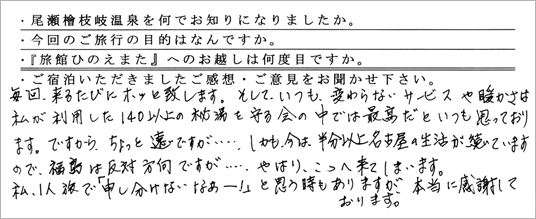 ・尾瀬檜枝岐温泉を何でお知りになりましたか。
・今回のご旅行の目的はなんですか。
・『旅館ひのえまた』へのお越しは何度目ですか。
・ご宿泊いただきましたご感想・ご意見をお聞かせ下さい。
毎回、来るたびにホッと致します。そして、いつも、変わらないサービスや暖かさは
私が利用した140以上の秘湯を守る会の中では最高だといつも思っており
ます。ですから、ちょっと遠ですが‥‥、しかも、今は半分以上名古屋の生活が続いています
ので、福島は反対方向ですが‥‥、やはり、こっへ来てしまいます。
私、1人旅で「申し分けないなあー!」と思う時もありますが、本当に感謝して
おります。